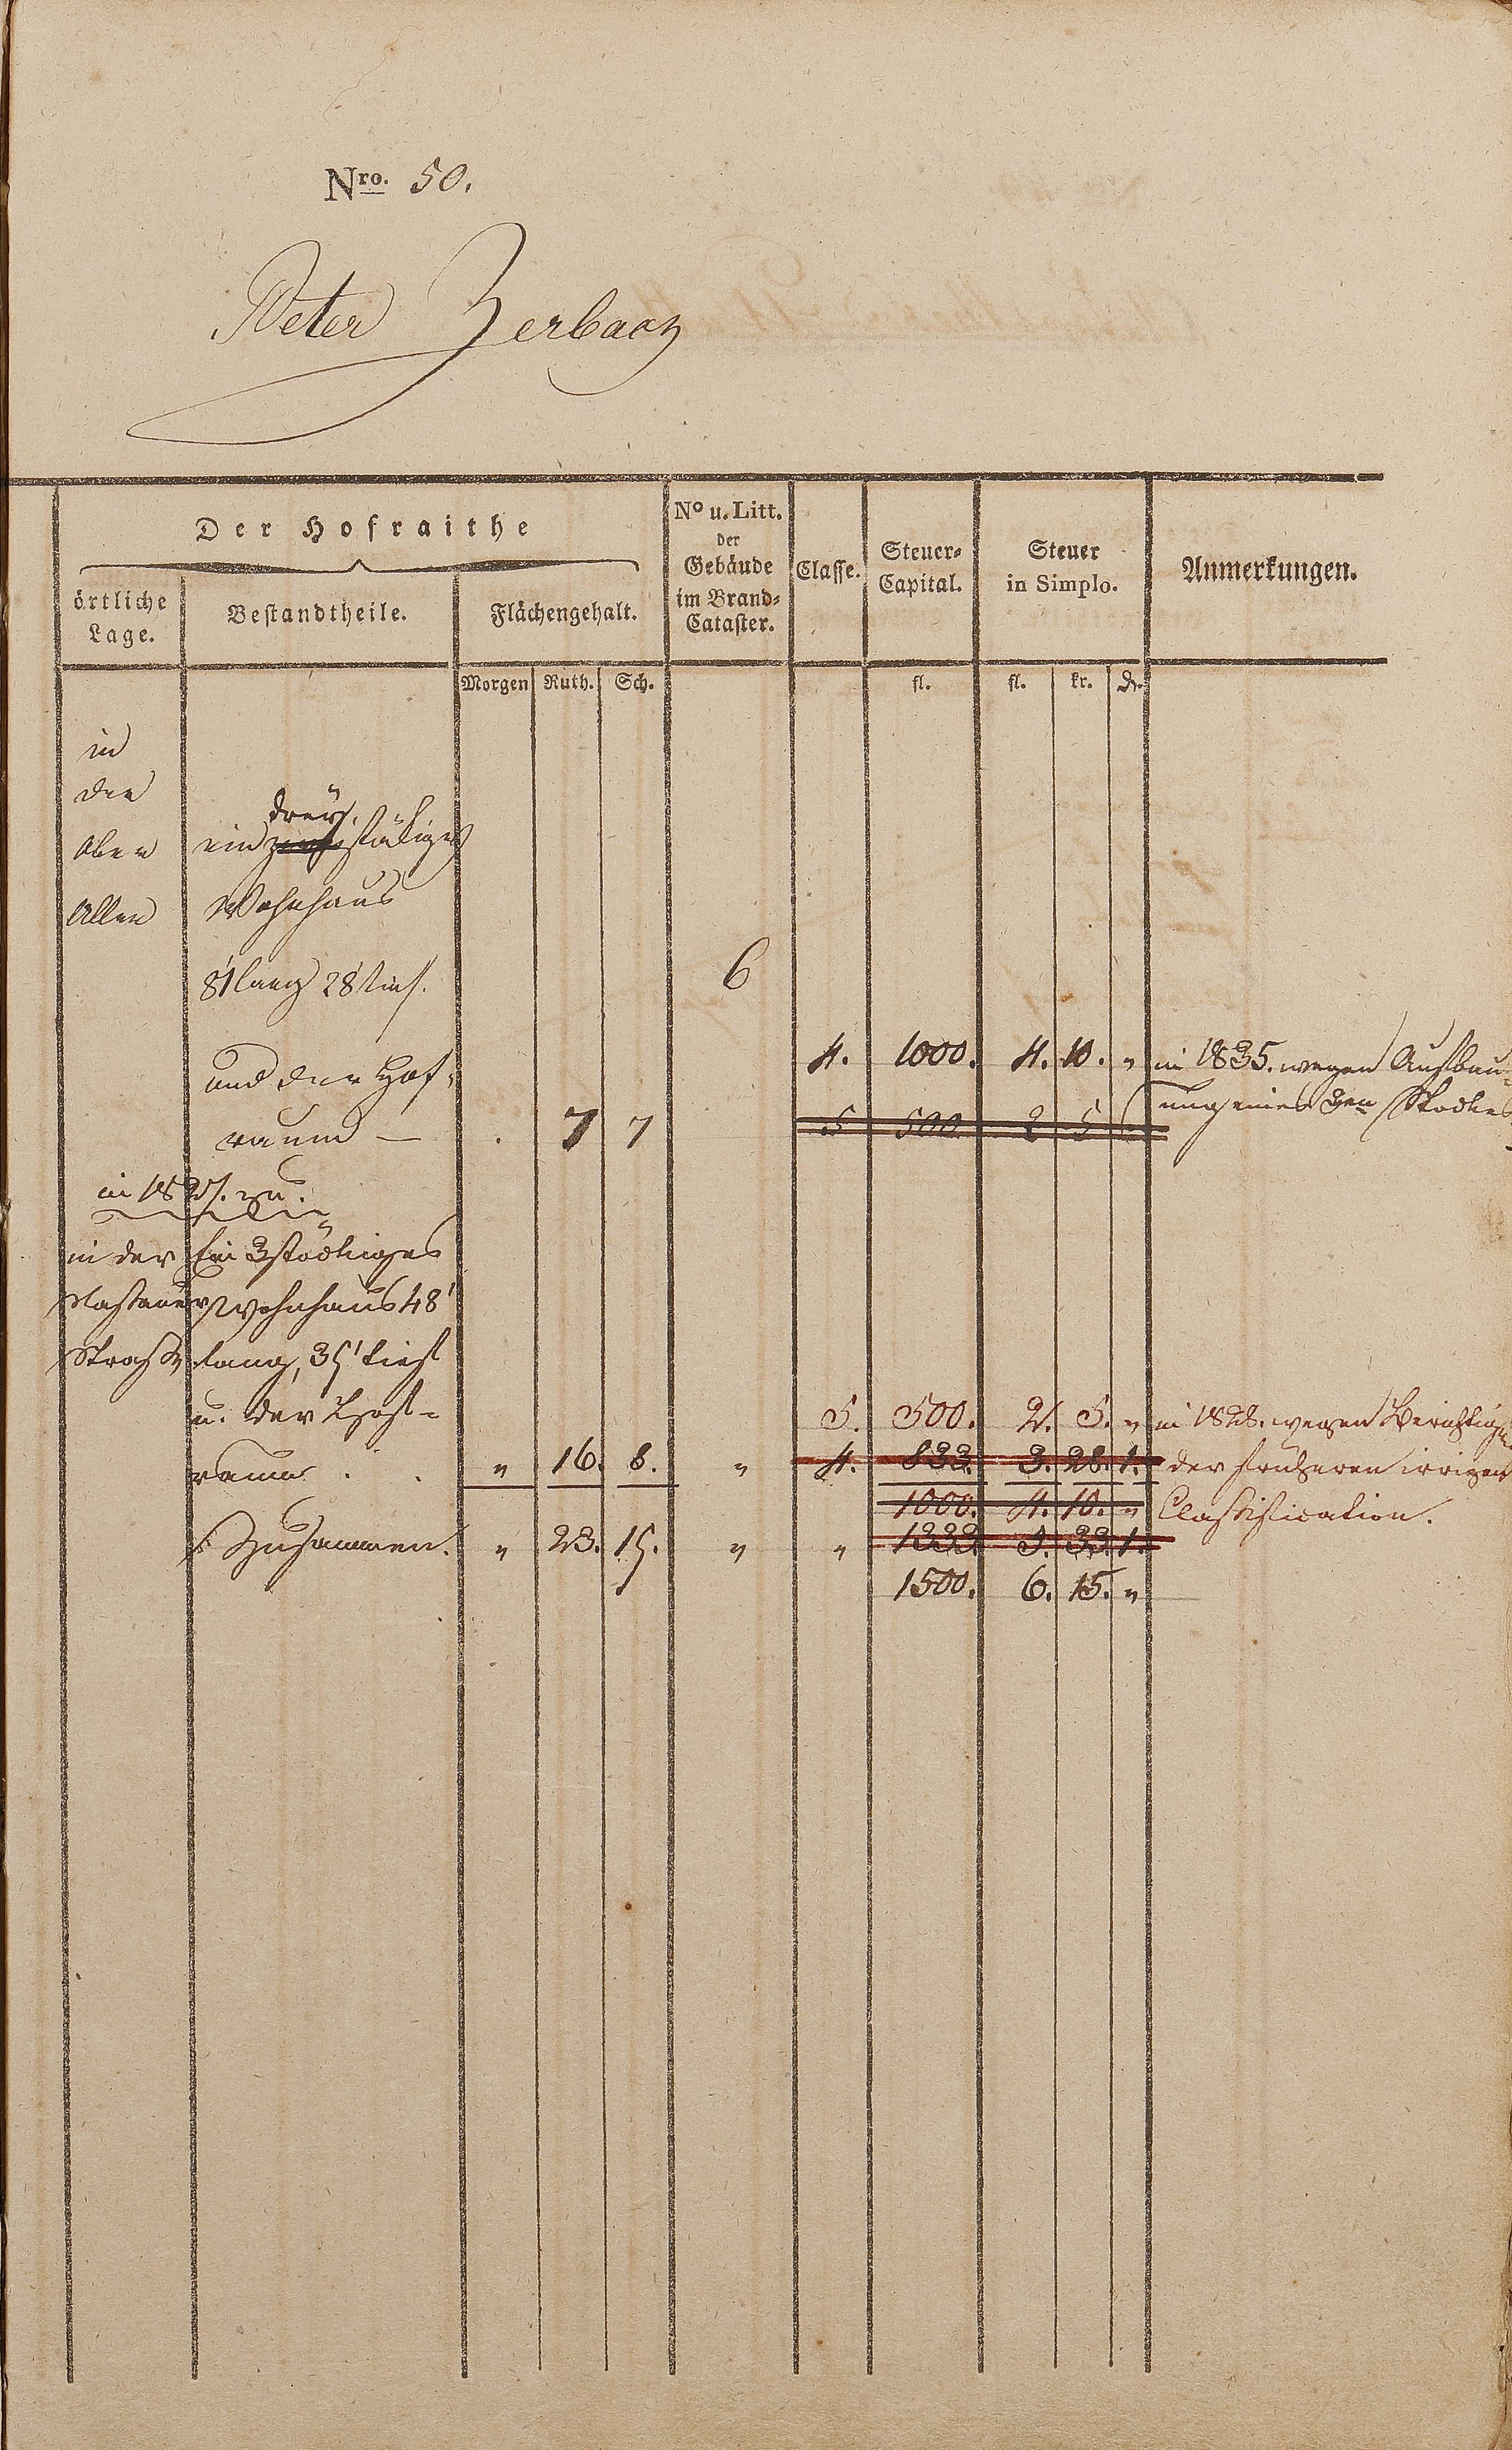 Nro. 50.
Peter Zerbach
Der Hofraithe
örtliche Lage.
Bestandtheile.
Flächengehalt.
No u. Litt. der Gebäude im Brand-Cataster.
Classe.
Steuer-Capital.
Steuer in Simplo.
Anmerkungen.
Morgen Ruth. Sch. fl. fl. kr. D.
in
der
drey
ober ein zwey stökiges
Allee Wohnhaus
6
81 lang 28 tief.
4. 1000. 4. 10. " in 1835. wegen Aufbau-
und der Hof-
ung eines 3en Stockes
raum — . 7 7 5 500 2 5
in 1827. zu.
in der Ein 3stöckiges
Nastäuer Wohnhaus 48'
Straße lang, 35' tief
u. der Hof- 5. 500. 2. 5. " in 1828. wegen Berichtigung
raum . . " 16. 8. " 4. 833. 3. 28. 1. der früheren irrigen
1000. 4. 10. " Classification.
Zusammen. " 23. 15. " " 1333. 5. 33. 1.
1500. 6. 15. "